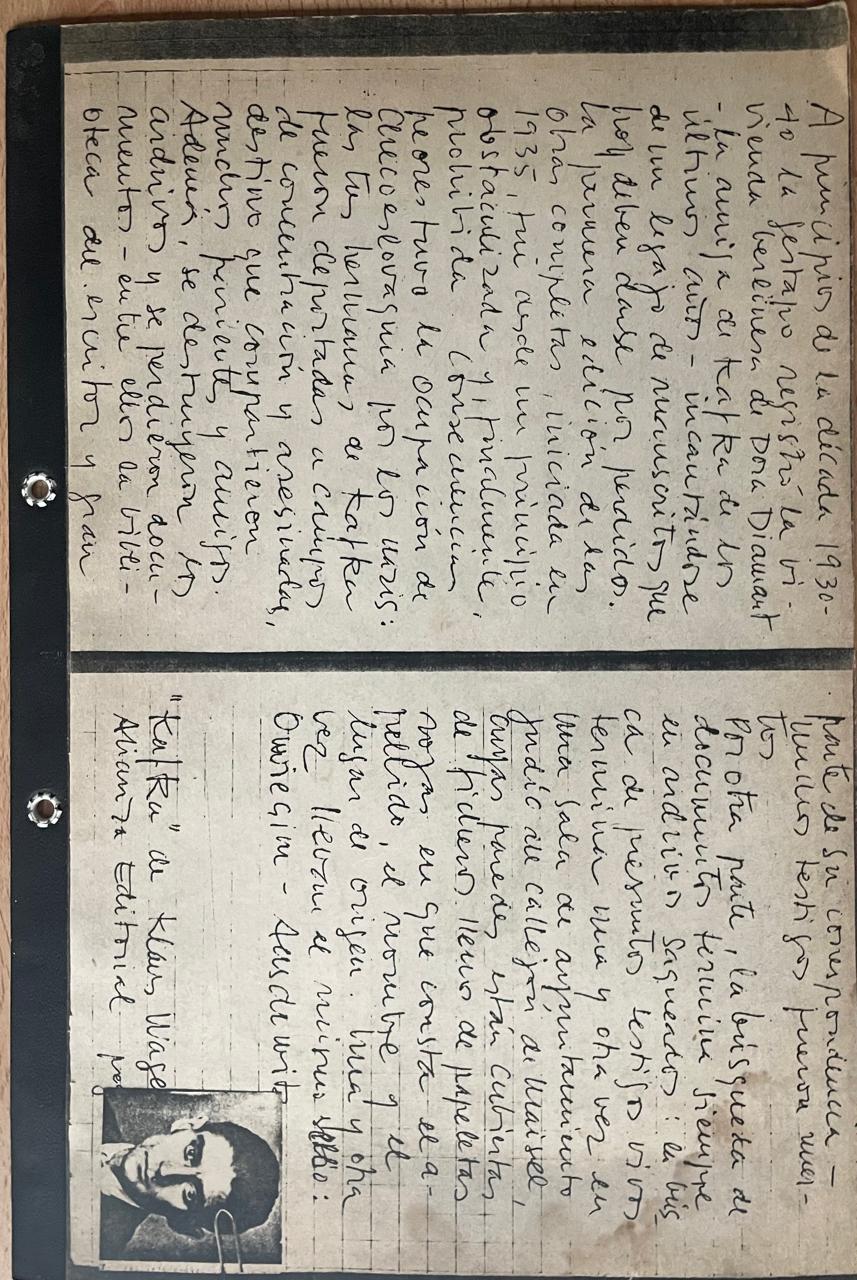 A principios de la década 1930-
40 la gestapo registró la vi-
vienda berlinesa de Dora Diamant
- la amiga de Kafka de los
últimos años - incautándose
de un legajo de manuscritos que
hoy deben darse por perdidos.
la primera edición de las
obras completas, iniciada en
1935, fue desde un principio
obstaculizada y, finalmente,
prohibida. Consecuencias
peores tuvo la ocupación de
Checoeslovaquia por los nazis:
las tres hermanas de Kafka
fueron deportadas a campos
de concentración y asesinadas,
destino que compartieron
muchos parientes y amigos.
Además, se destruyeron los
archivos y se perdieron docu-
mentos - entre ellos la bibli-
oteca del escritor y gran
parte de su correspondencia -
muchos testigos fueron muer-
tos
Por otra parte, la búsqueda de
documentos termina siempre
en archivos saqueados: la bús
ca de presuntos testigos vivos
termina una y otra vez en
una sala de ayuntamiento
judío de callejón de Maisel,
cuyas paredes están cubiertas
de ficheros llenos de papeletas
rojas en que consta el a-
pellido, el nombre y el
lugar de origen. Una y otra
vez llevan el mismo sello:
Oswiecim - Auschwitz
"Kafka" de Klaus Wage
Alianza Editorial